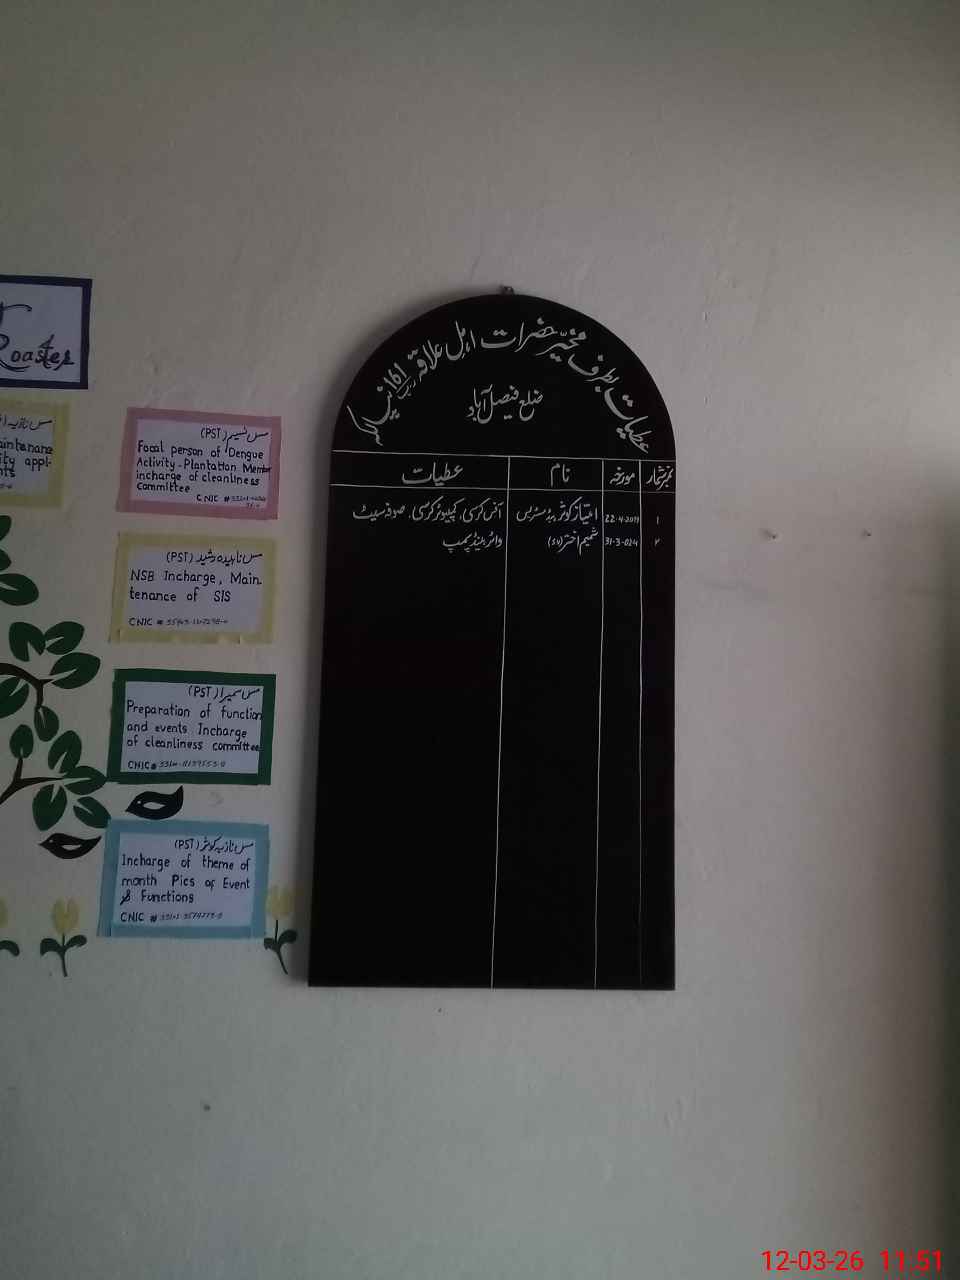 Roaster
مس نسیم (PST)
Focal person of Dengue
Activity - Plantation Member
incharge of cleanliness
committee
CNIC #
مس ناہیدہ رشید (PST)
NSB Incharge, Main-
tenance of SIS
CNIC #
مس سمیرا (PST)
Preparation of function
and events Incharge
of cleanliness committee
CNIC #
مس نازیہ کوثر (PST)
Incharge of theme of
month Pics of Event
& Functions
CNIC #
عطیات بطرف مخیّر حضرات اہل علاقہ 161 رب
ضلع فیصل آباد
نمبر شمار مورخہ نام عطیات
۱ 22-4-2019 امتیاز کوثر ہیڈ مسٹریس آفس کرسی، کمپیوٹر کرسی، صوفہ سیٹ
۲ شمیم اختر واٹر ہینڈ پمپ
12-03-26 11:51